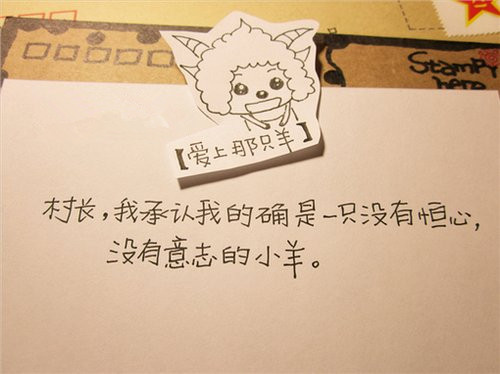 Stamp
【爱上那只羊】
村长,我承认我的确是一只没有恒心,
没有意志的小羊。